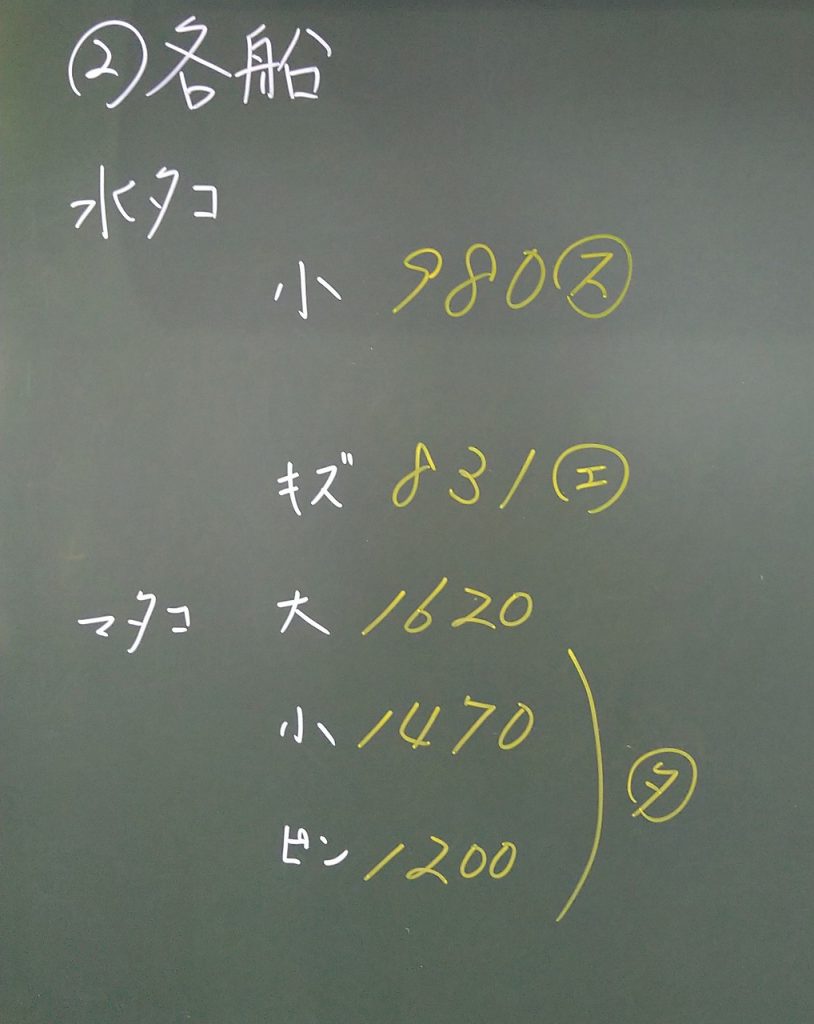 ②各船
水タコ
小 980 ㋜
キズ 831 ㋓
マタコ 大 1620
小 1470
㋟
ピン 1200